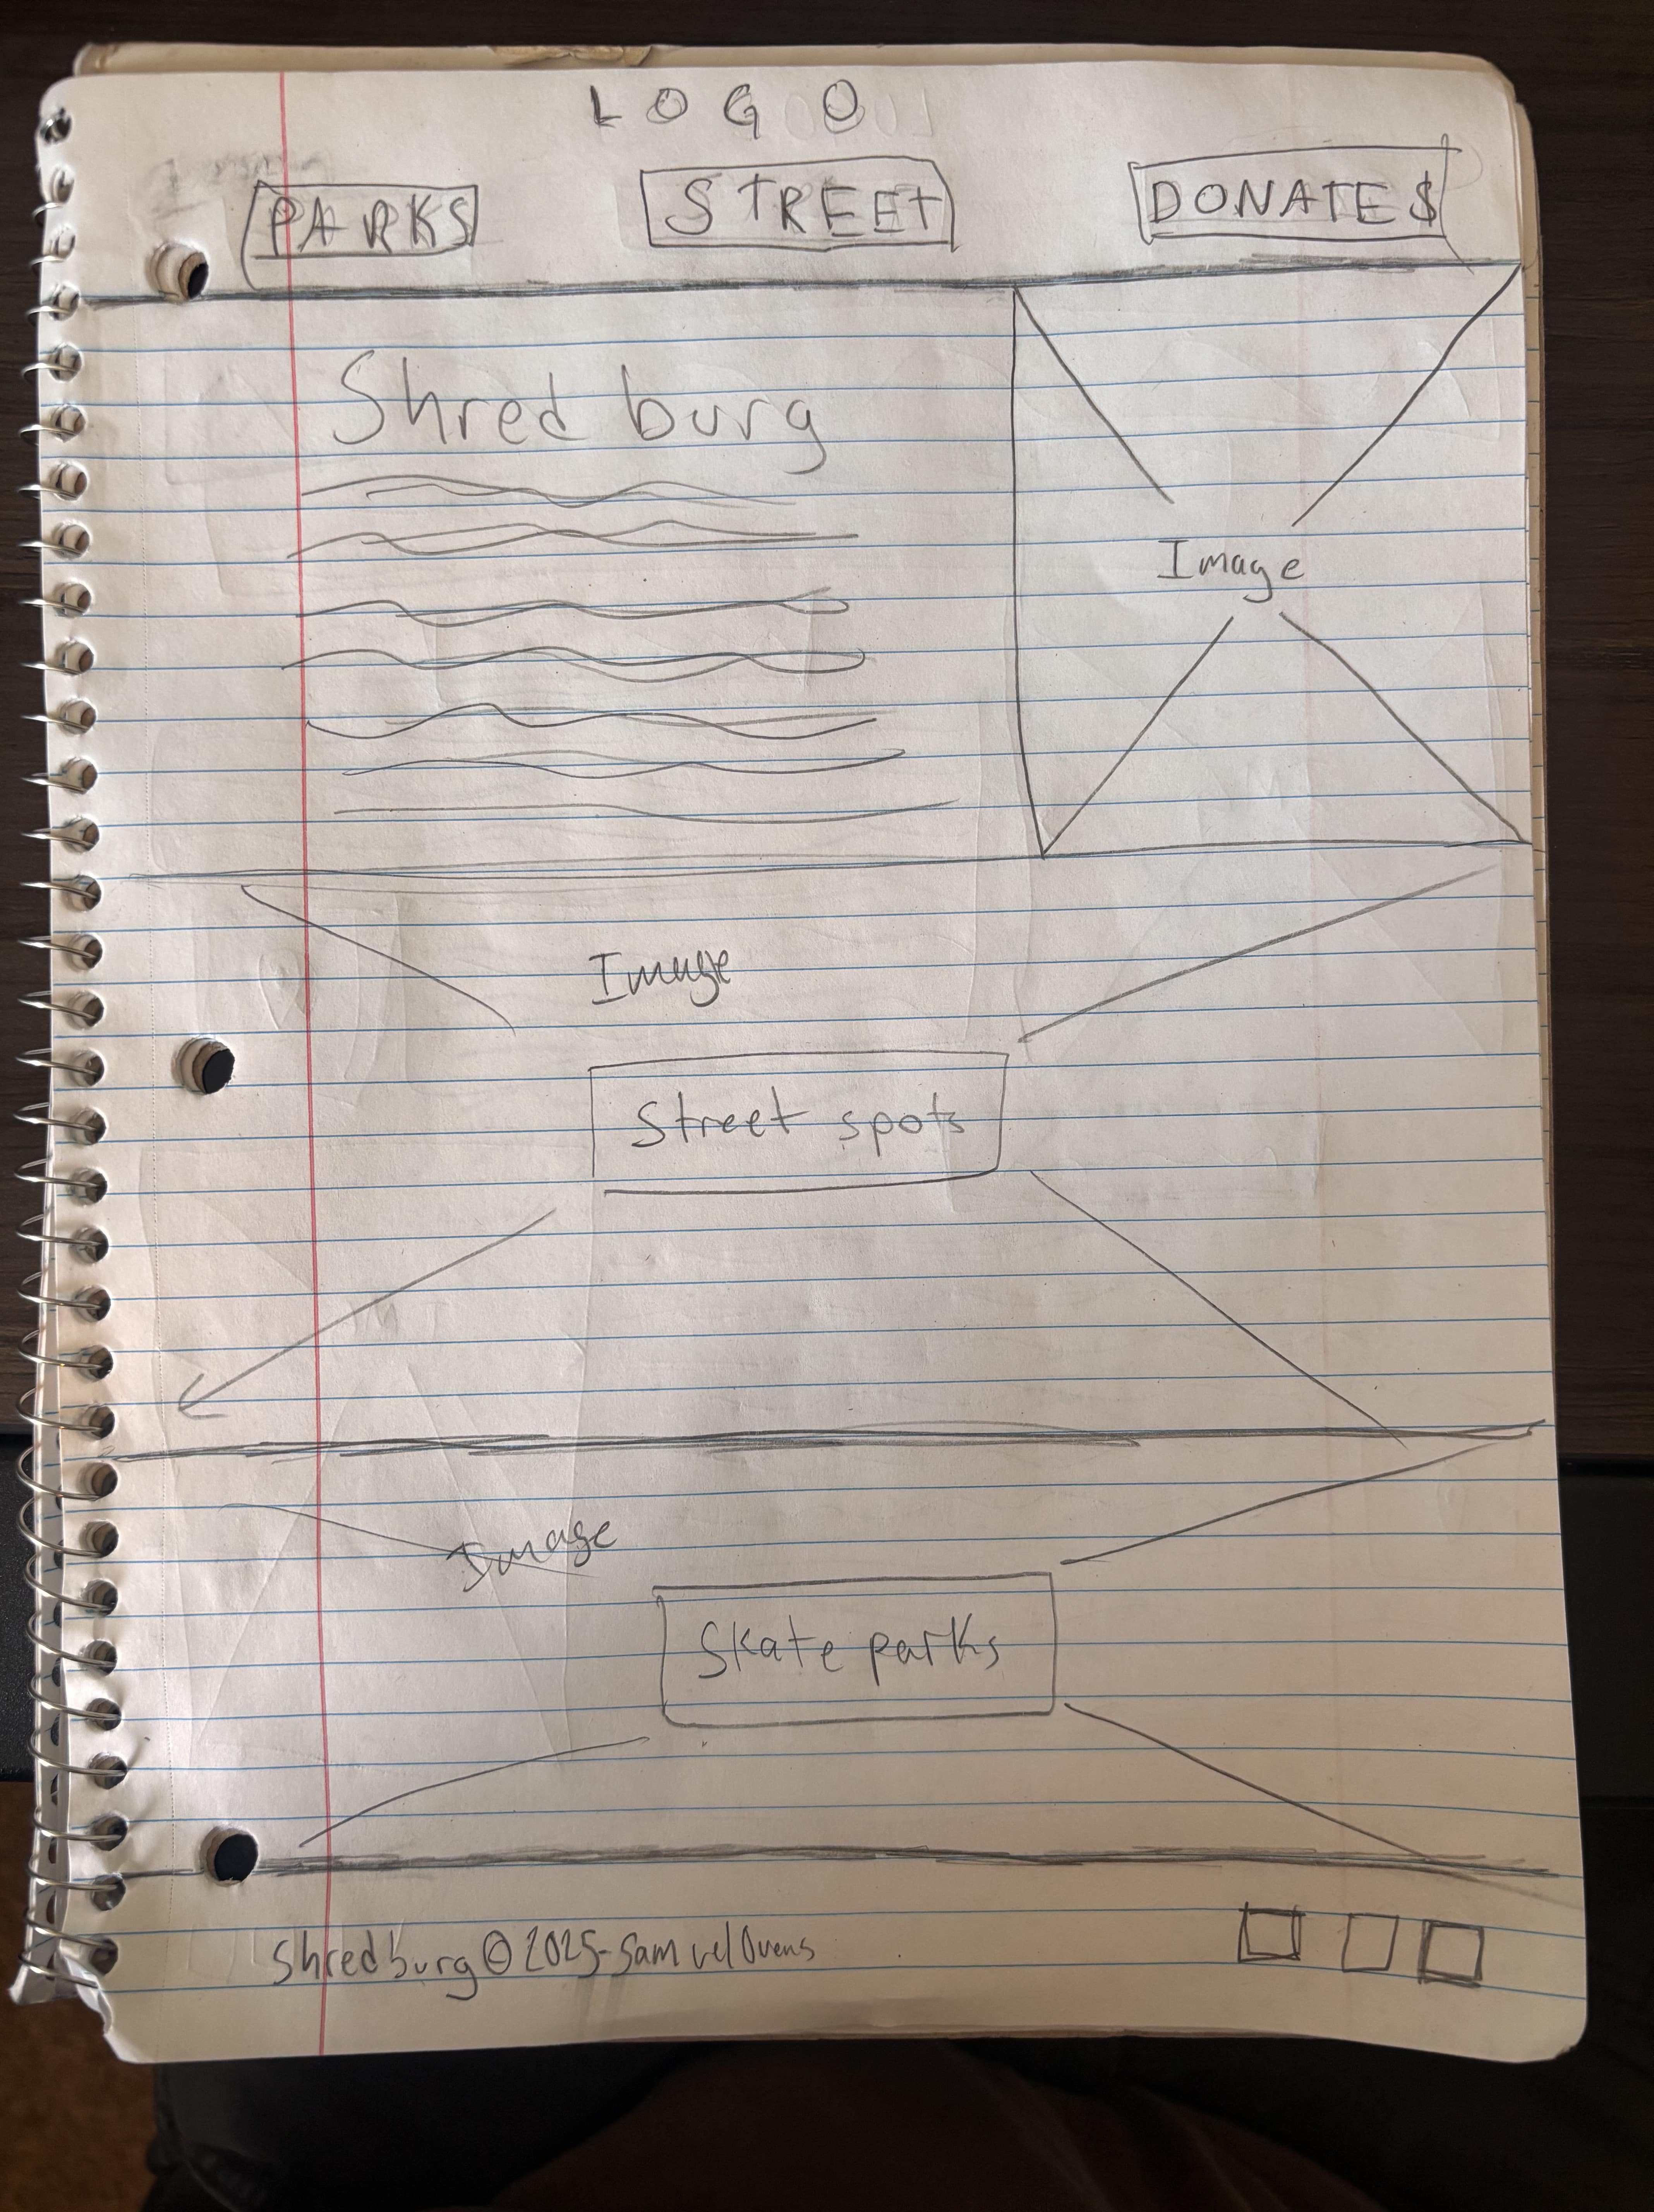 LOGO
PARKS STREET DONATE $
Shredburg
Image
Image
Street spots
Image
Skate parks
Shredburg © 2025 - Samuel Ovens